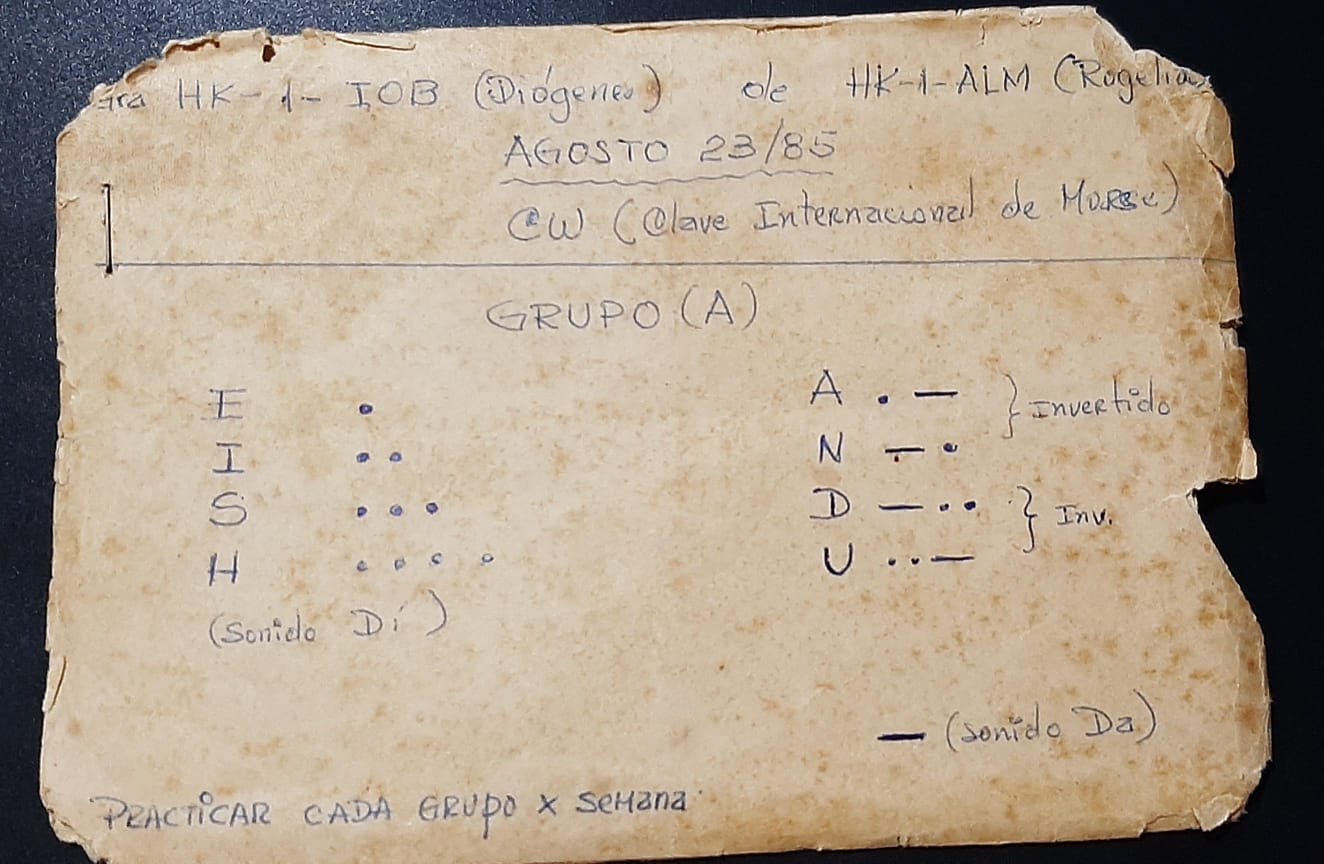 HK-1-IOB (Diógenes) de HK-1-ALM (Rogelio
AGOSTO 23/85
CW (Clave Internacional de Morse)
GRUPO (A)
E .
I . .
S . . .
H . . . .
(Sonido Di)
A . — } Invertido
N — .
D — . . } Inv.
U . . —
— (Sonido Da)
PRACTICAR CADA GRUPO x SEMANA